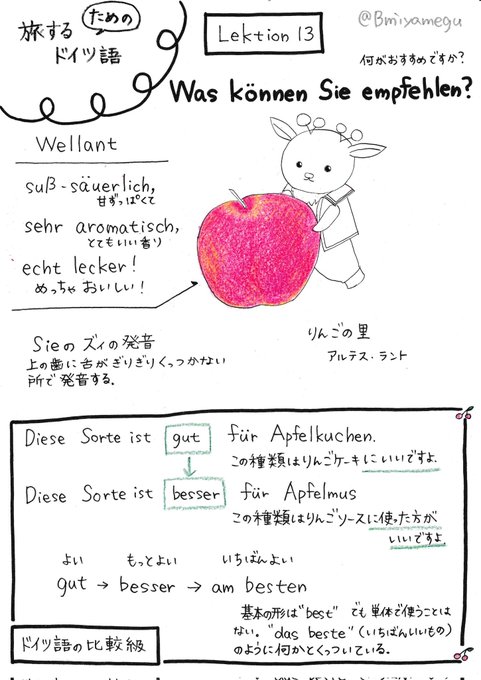 旅する
ための
ドイツ語
Lektion 13
@Bmiyamegu
何がおすすめですか?
Was können Sie empfehlen?
Wellant
suß-säuerlich,
甘ずっぱくて
sehr aromatisch,
とてもいい香り
echt lecker!
めっちゃおいしい!
Sieのズィの発音
上の歯に舌がぎりぎりくっつかない
所で発音する.
りんごの里
アルテス・ラント
Diese Sorte ist gut für Apfelkuchen.
この種類はりんごケーキにいいですよ.
Diese Sorte ist besser für Apfelmus
この種類はりんごソースに使った方が
いいですよ
よい もっとよい いちばんよい
gut → besser → am besten
基本の形は"best" でも単体で使うことは
ない。"das beste"(いちばんいいもの)
のように何かとくっついている。
ドイツ語の比較級